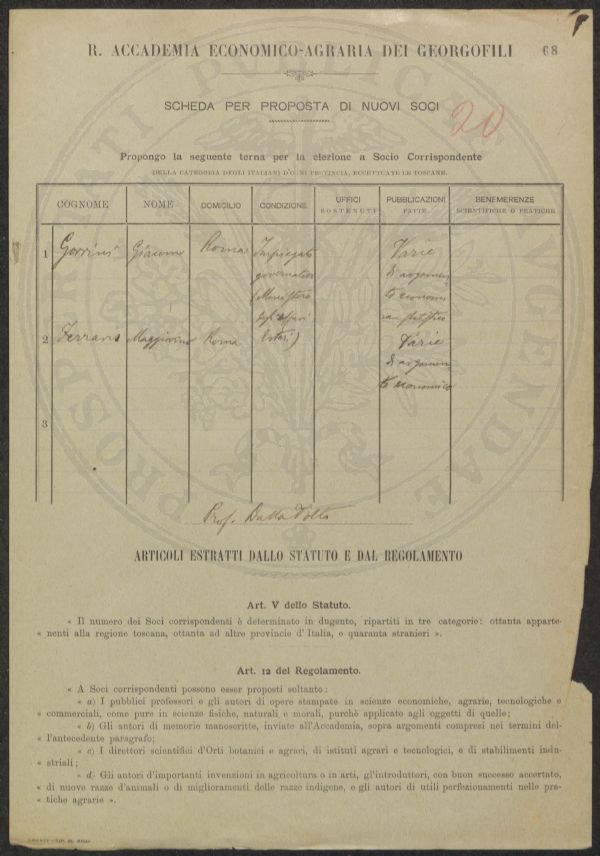 R. ACCADEMIA ECONOMICO-AGRARIA DEI GEORGOFILI 68
SCHEDA PER PROPOSTA DI NUOVI SOCI
20
Propongo la seguente terna per la elezione a Socio Corrispondente
DELLA CATEGORIA DEGLI ITALIANI D'OGNI PROVINCIA, ECCETTUATE LE TOSCANE.
COGNOME NOME DOMICILIO CONDIZIONE UFFICI SOSTENUTI PUBBLICAZIONI FATTE BENEMERENZE SCIENTIFICHE O PRATICHE
1 Gorrini Giacomo Roma Impiegato Varie
governativo di argomen
(Ministero to econom
degli affari co politico
2 Ferraris Maggiorino Roma Esteri) Varie
di argomen
to economico
3
Prof. Dalla Volta
ARTICOLI ESTRATTI DALLO STATUTO E DAL REGOLAMENTO
Art. V dello Statuto.
« Il numero dei Soci corrispondenti è determinato in dugento, ripartiti in tre categorie: ottanta apparte-
« nenti alla regione toscana, ottanta ad altre provincie d'Italia, e quaranta stranieri ».
Art. 12 del Regolamento.
« A Soci corrispondenti possono esser proposti soltanto:
« a) I pubblici professori e gli autori di opere stampate in scienze economiche, agrarie, tecnologiche e
« commerciali, come pure in scienze fisiche, naturali e morali, purchè applicate agli oggetti di quelle;
« b) Gli autori di memorie manoscritte, inviate all'Accademia, sopra argomenti compresi nei termini del-
« l'antecedente paragrafo;
« c) I direttori scientifici d'Orti botanici e agrari, di istituti agrari e tecnologici, e di stabilimenti indu-
« striali;
« d) Gli autori d'importanti invenzioni in agricoltura o in arti, gl'introduttori, con buon successo accertato,
« di nuove razze d'animali o di miglioramenti delle razze indigene, e gli autori di utili perfezionamenti nelle pra-
« tiche agrarie ».
PROSPERITATI PUBLICAE PROVEHENDAE